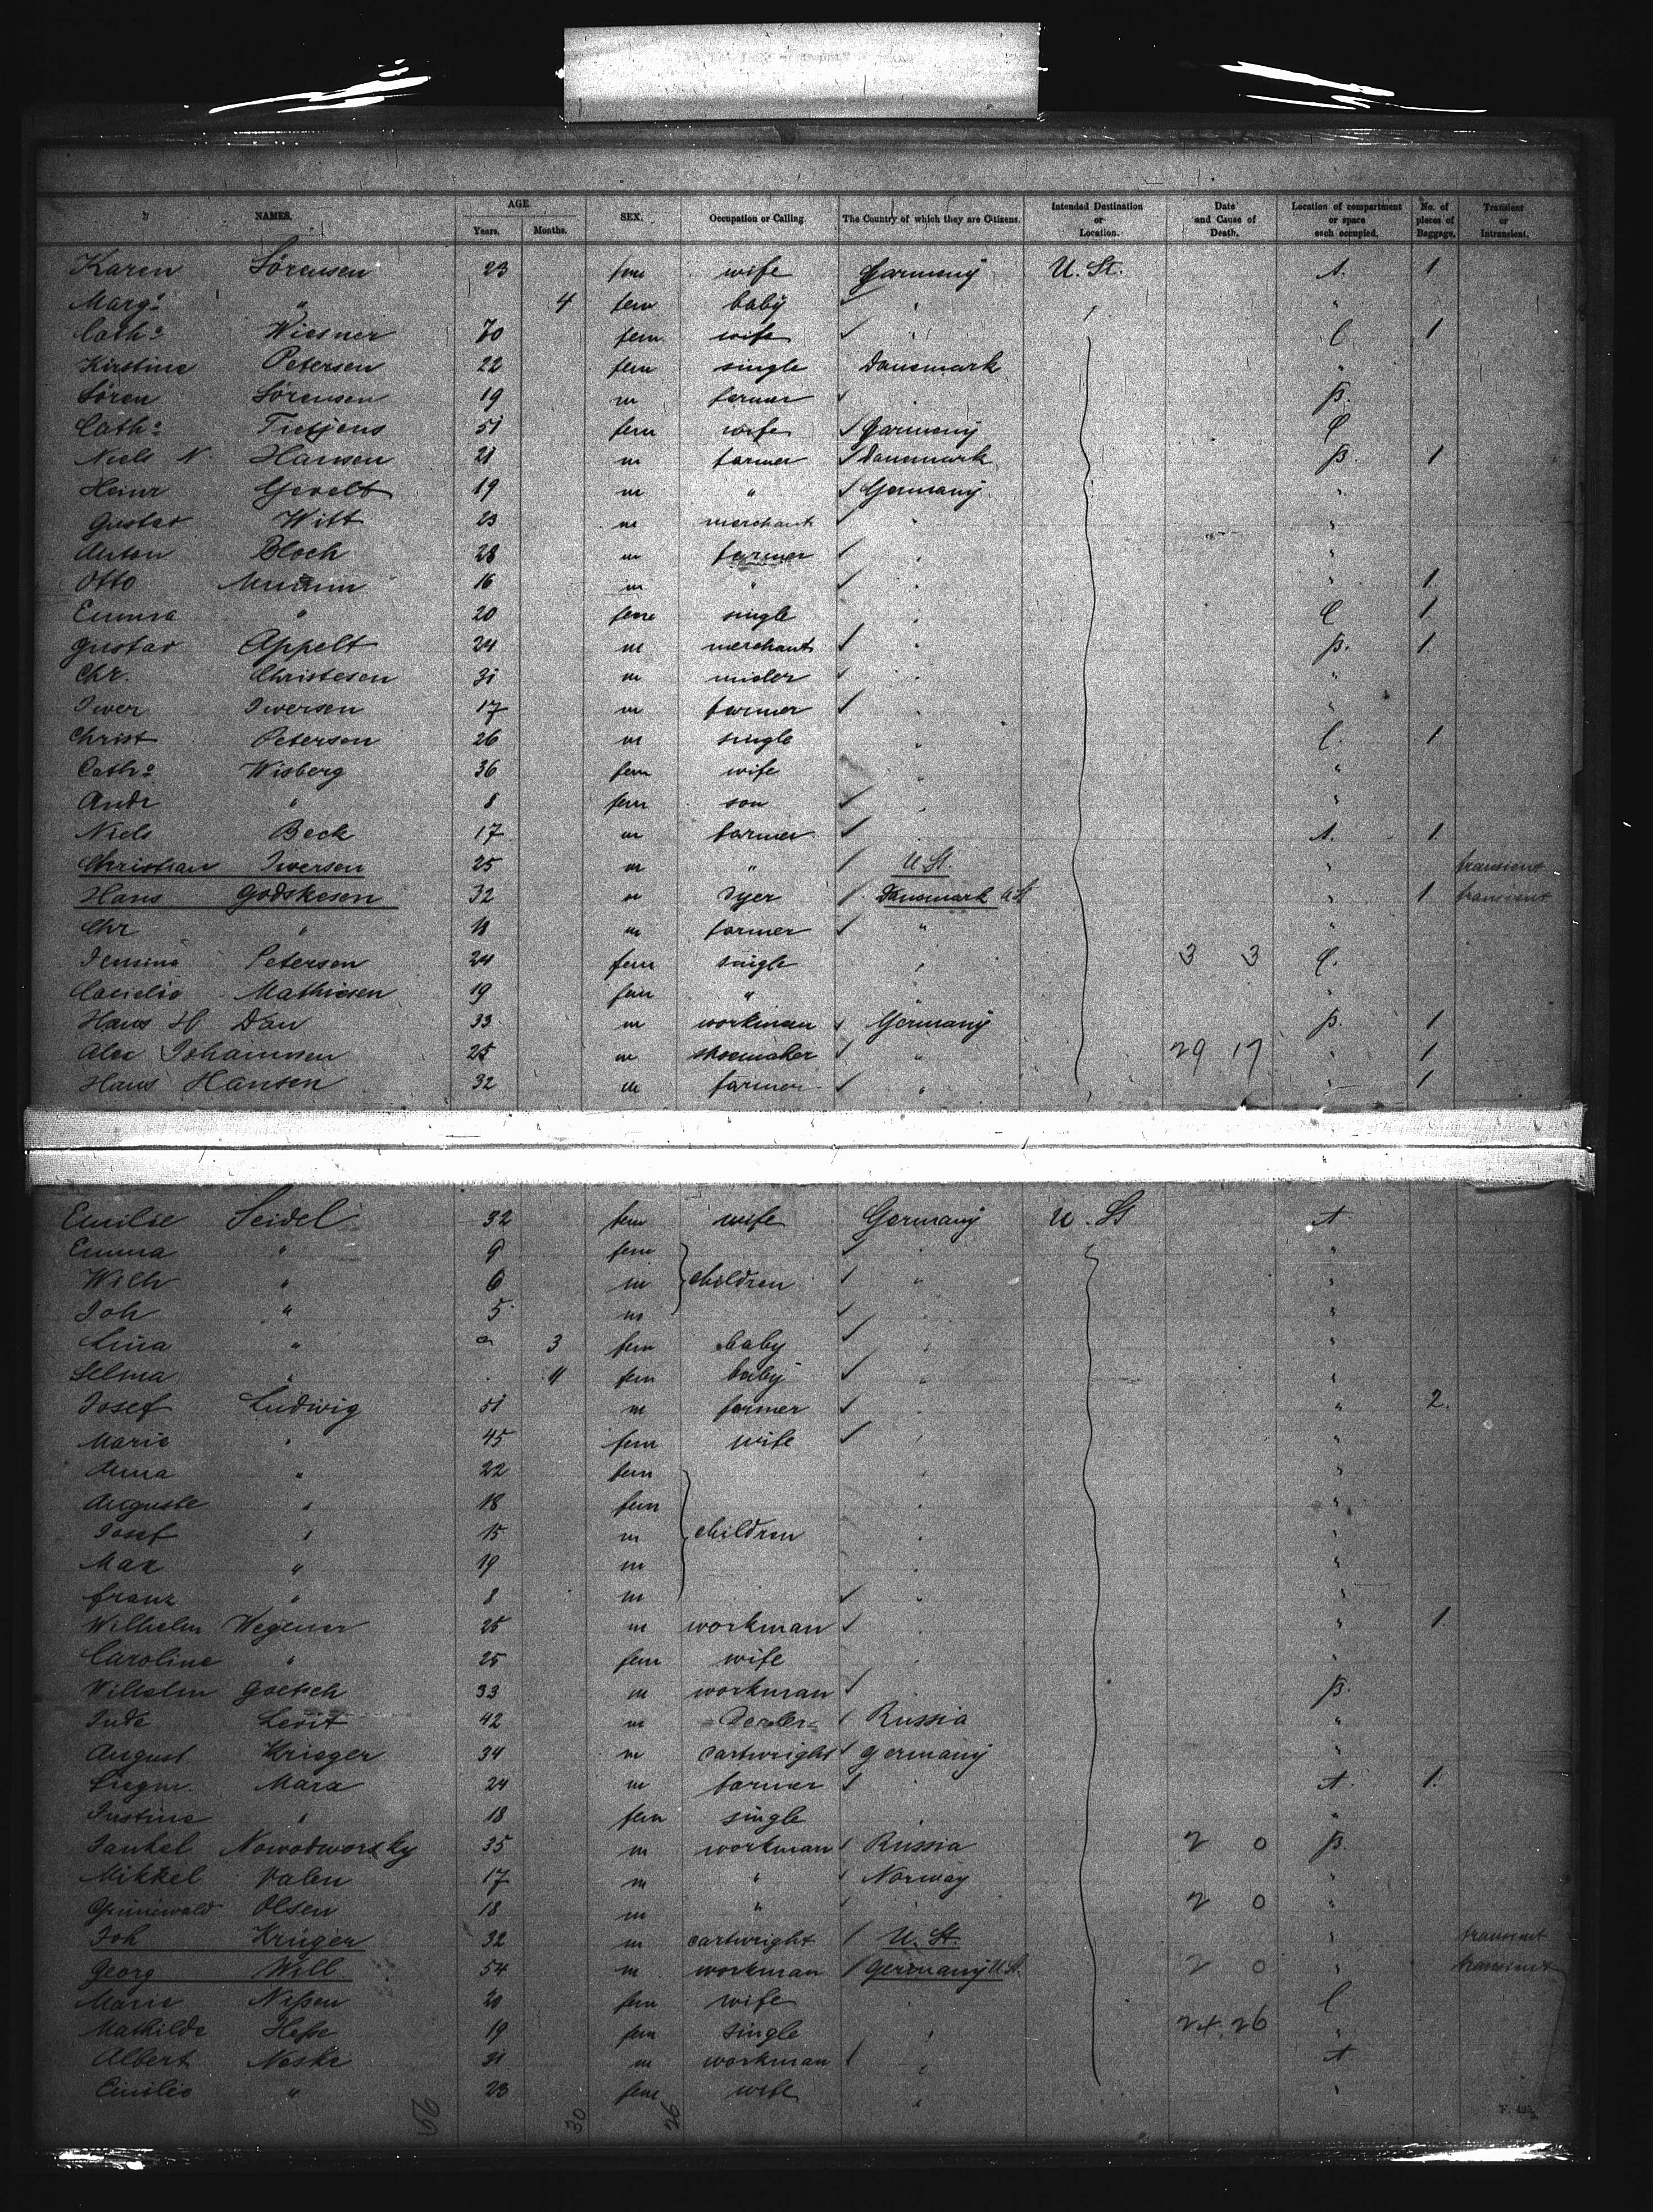 NAMES. AGE. Years. Months. SEX. Occupation or Calling. The Country of which they are Citizens. Intended Destination or Location. Date and Cause of Death. Location of compartment or space each occupied. No. of pieces of Baggage. Transient or Intransient.
Karen Sörensen 23 fem wife Germany U. St. A. 1
Marg. " 4 fem baby " "
Cath. Wiesner 70 fem wife " C 1
Kirstine Petersen 22 fem single Danemark "
Sören Sörensen 19 m farmer " B.
Cath. Tietjens 51 fem wife Germany C
Niels N. Hansen 21 m farmer Danemark B. 1
Heinr Gevelt 19 m " Germany "
Gustav Witt 23 m merchant " "
Anton Bloch 28 m farmer " "
Otto 16 m " " " 1
Emma " 20 fem single " C 1
Gustav Appelt 24 m merchant " B. 1
Chr. Christesen 31 m " "
Iwer Iwersen 17 m farmer " "
Christ Petersen 26 m single " C. 1
Cath. Wisberg 36 fem wife " "
Andr " 8 fem son " "
Niels Beck 17 m farmer " A. 1
Christian Iwersen 25 m " U. St. " transient
Hans Godskesen 32 m dyer Danemark U St " 1 transient
Chr " 18 m farmer " "
Jensine Petersen 24 fem single " 3 3 C.
Mathiesen 19 fem " " "
Hans H Dau 33 m workman Germany B. 1
Alex Johannsen 25 m shoemaker " 29 17 " 1
Hans Hansen 32 m farmer " " 1
Emilie Seidel 32 fem wife Germany U. St A
Emma " 9 fem " "
Wilh " 6 m children " "
Joh " 5 m " "
Lina " 3 fem baby " "
Selma " 11 fem baby " "
Josef Ludwig 51 m farmer " " 2.
Marie " 45 fem wife " "
Anna " 22 fem " "
Auguste " 18 fem " "
Josef " 15 m children " "
Max " 19 m " "
Franz " 8 m " "
Wilhelm Wegener 25 m workman " " 1.
Caroline " 25 fem wife " "
Wilhelm Goetsch 33 m workman " B.
Jude Levit 42 m Russia "
August Krieger 34 m cartwright Germany "
Siegm. Marx 24 m farmer " A. 1.
Justine " 18 fem single " "
Jankel Nowodworsky 35 m workman Russia 2 0 B.
Mikkel Valen 17 m " Norway "
Grünewald Olsen 18 m " " 2 0 "
Joh Krüger 32 m cartwright U. St. " transient
Georg Will 54 m workman Germany U. St. 2 0 " transient
Marie Nissen 20 fem wife " C
Mathilde Hesse 19 fem single " 24 26 "
Albert Neske 31 m workman " A
Emilie " 23 fem wife " "
56 30 26